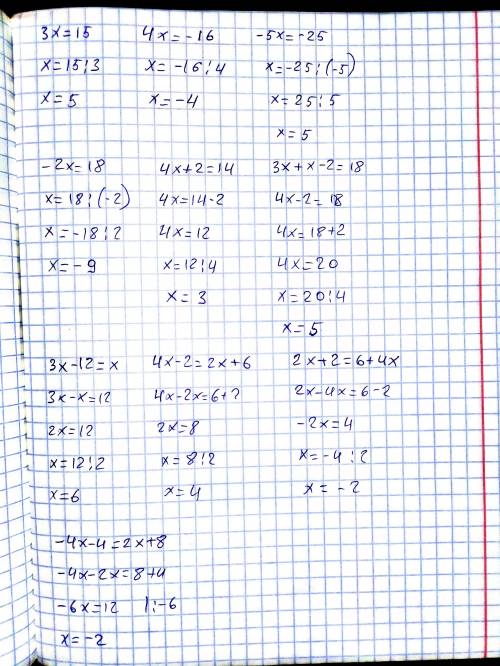 3x=15
x=15:3
x=5
4x=-16
x=-16:4
x=-4
-5x=-25
x=-25:(-5)
x=25:5
x=5
-2x=18
x=18:(-2)
x=-18:2
x=-9
4x+2=14
4x=14-2
4x=12
x=12:4
x=3
3x+x-2=18
4x-2=18
4x=18+2
4x=20
x=20:4
x=5
3x-12=x
3x-x=12
2x=12
x=12:2
x=6
4x-2=2x+6
4x-2x=6+2
2x=8
x=8:2
x=4
2x+2=6+4x
2x-4x=6-2
-2x=4
x=-4:2
x=-2
-4x-4=2x+8
-4x-2x=8+4
-6x=12 |:-6
x=-2